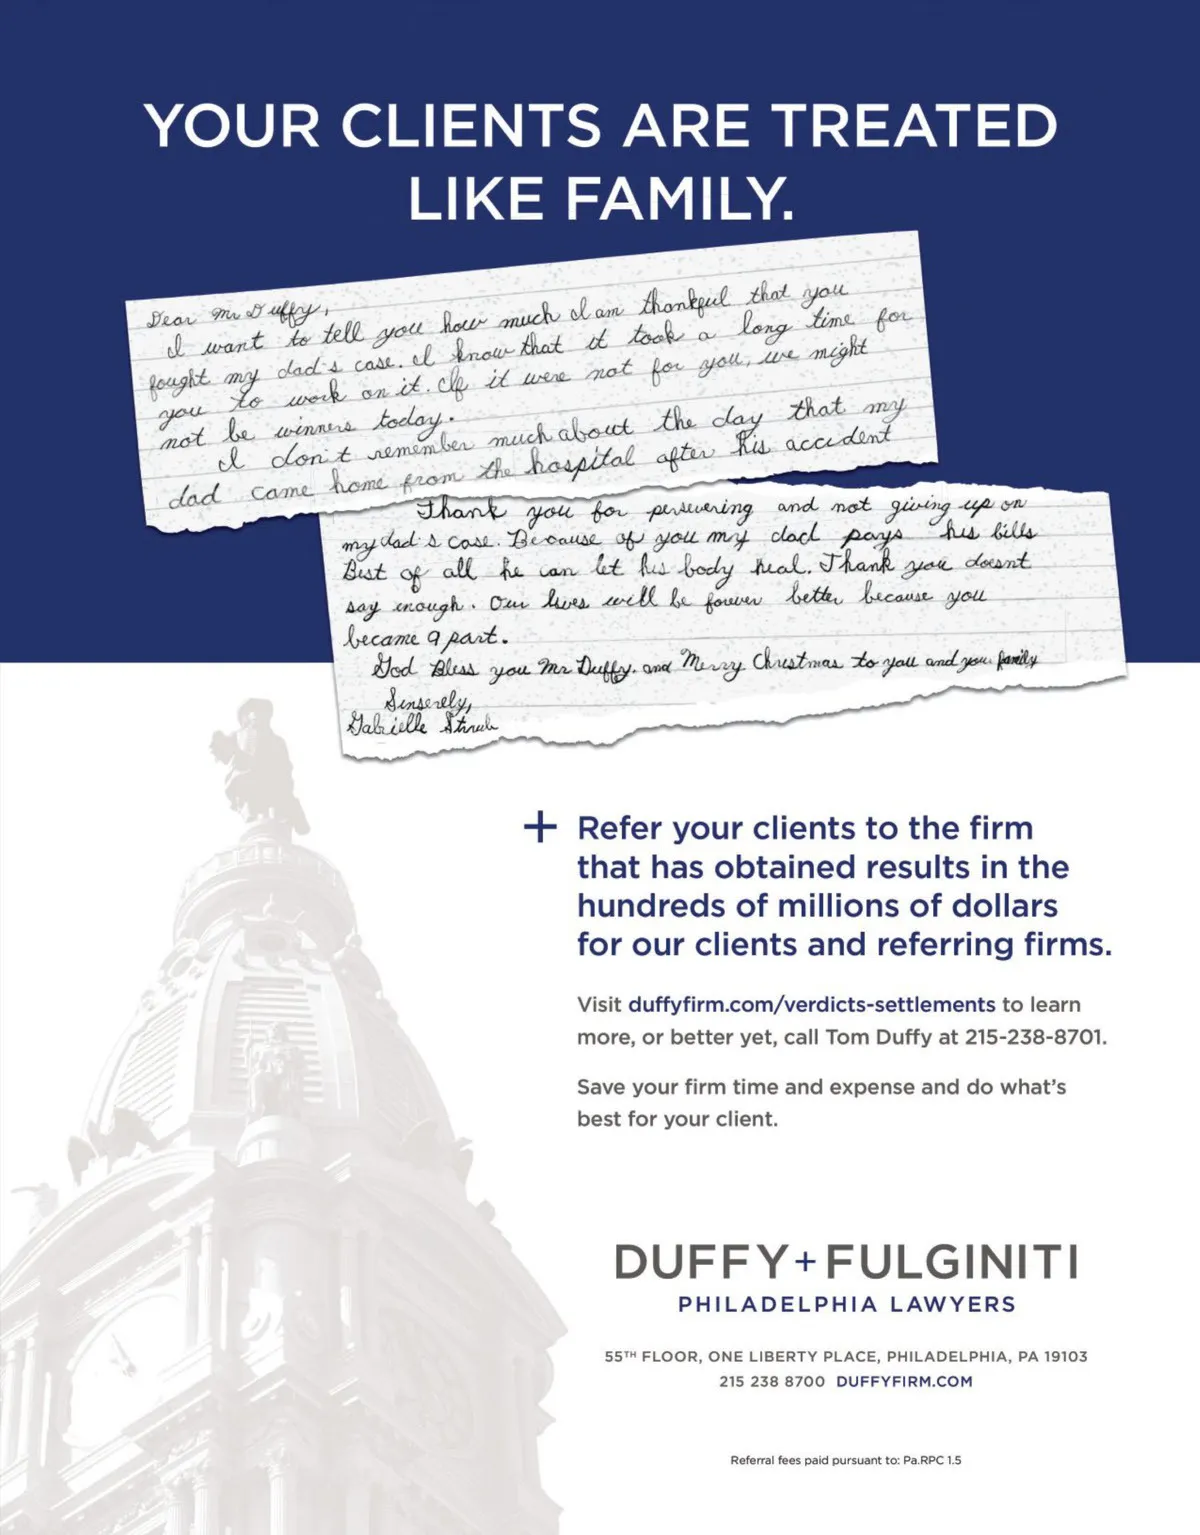 YOUR CLIENTS ARE TREATED
LIKE FAMILY.
Dear Mr Duffy,
I want to tell you how much I am thankful that you
fought my dad's case. I know that it took a long time for
you to work on it. If it were not for you, we might
not be winners today.
I don't remember much about the day that my
dad came home from the hospital after his accident
Thank you for persevering and not giving up on
my dad's case. Because of you my dad pays his bills
Best of all he can let his body heal. Thank you doesnt
say enough. Our lives will be forever better because you
became a part.
God Bless you Mr Duffy. and Merry Christmas to you and you family
Sinserely,
Gabrielle
+ Refer your clients to the firm
that has obtained results in the
hundreds of millions of dollars
for our clients and referring firms.
Visit duffyfirm.com/verdicts-settlements to learn
more, or better yet, call Tom Duffy at 215-238-8701.
Save your firm time and expense and do what's
best for your client.
DUFFY+FULGINITI
PHILADELPHIA LAWYERS
55TH FLOOR, ONE LIBERTY PLACE, PHILADELPHIA, PA 19103
215 238 8700 DUFFYFIRM.COM
Referral fees paid pursuant to: Pa.RPC 1.5